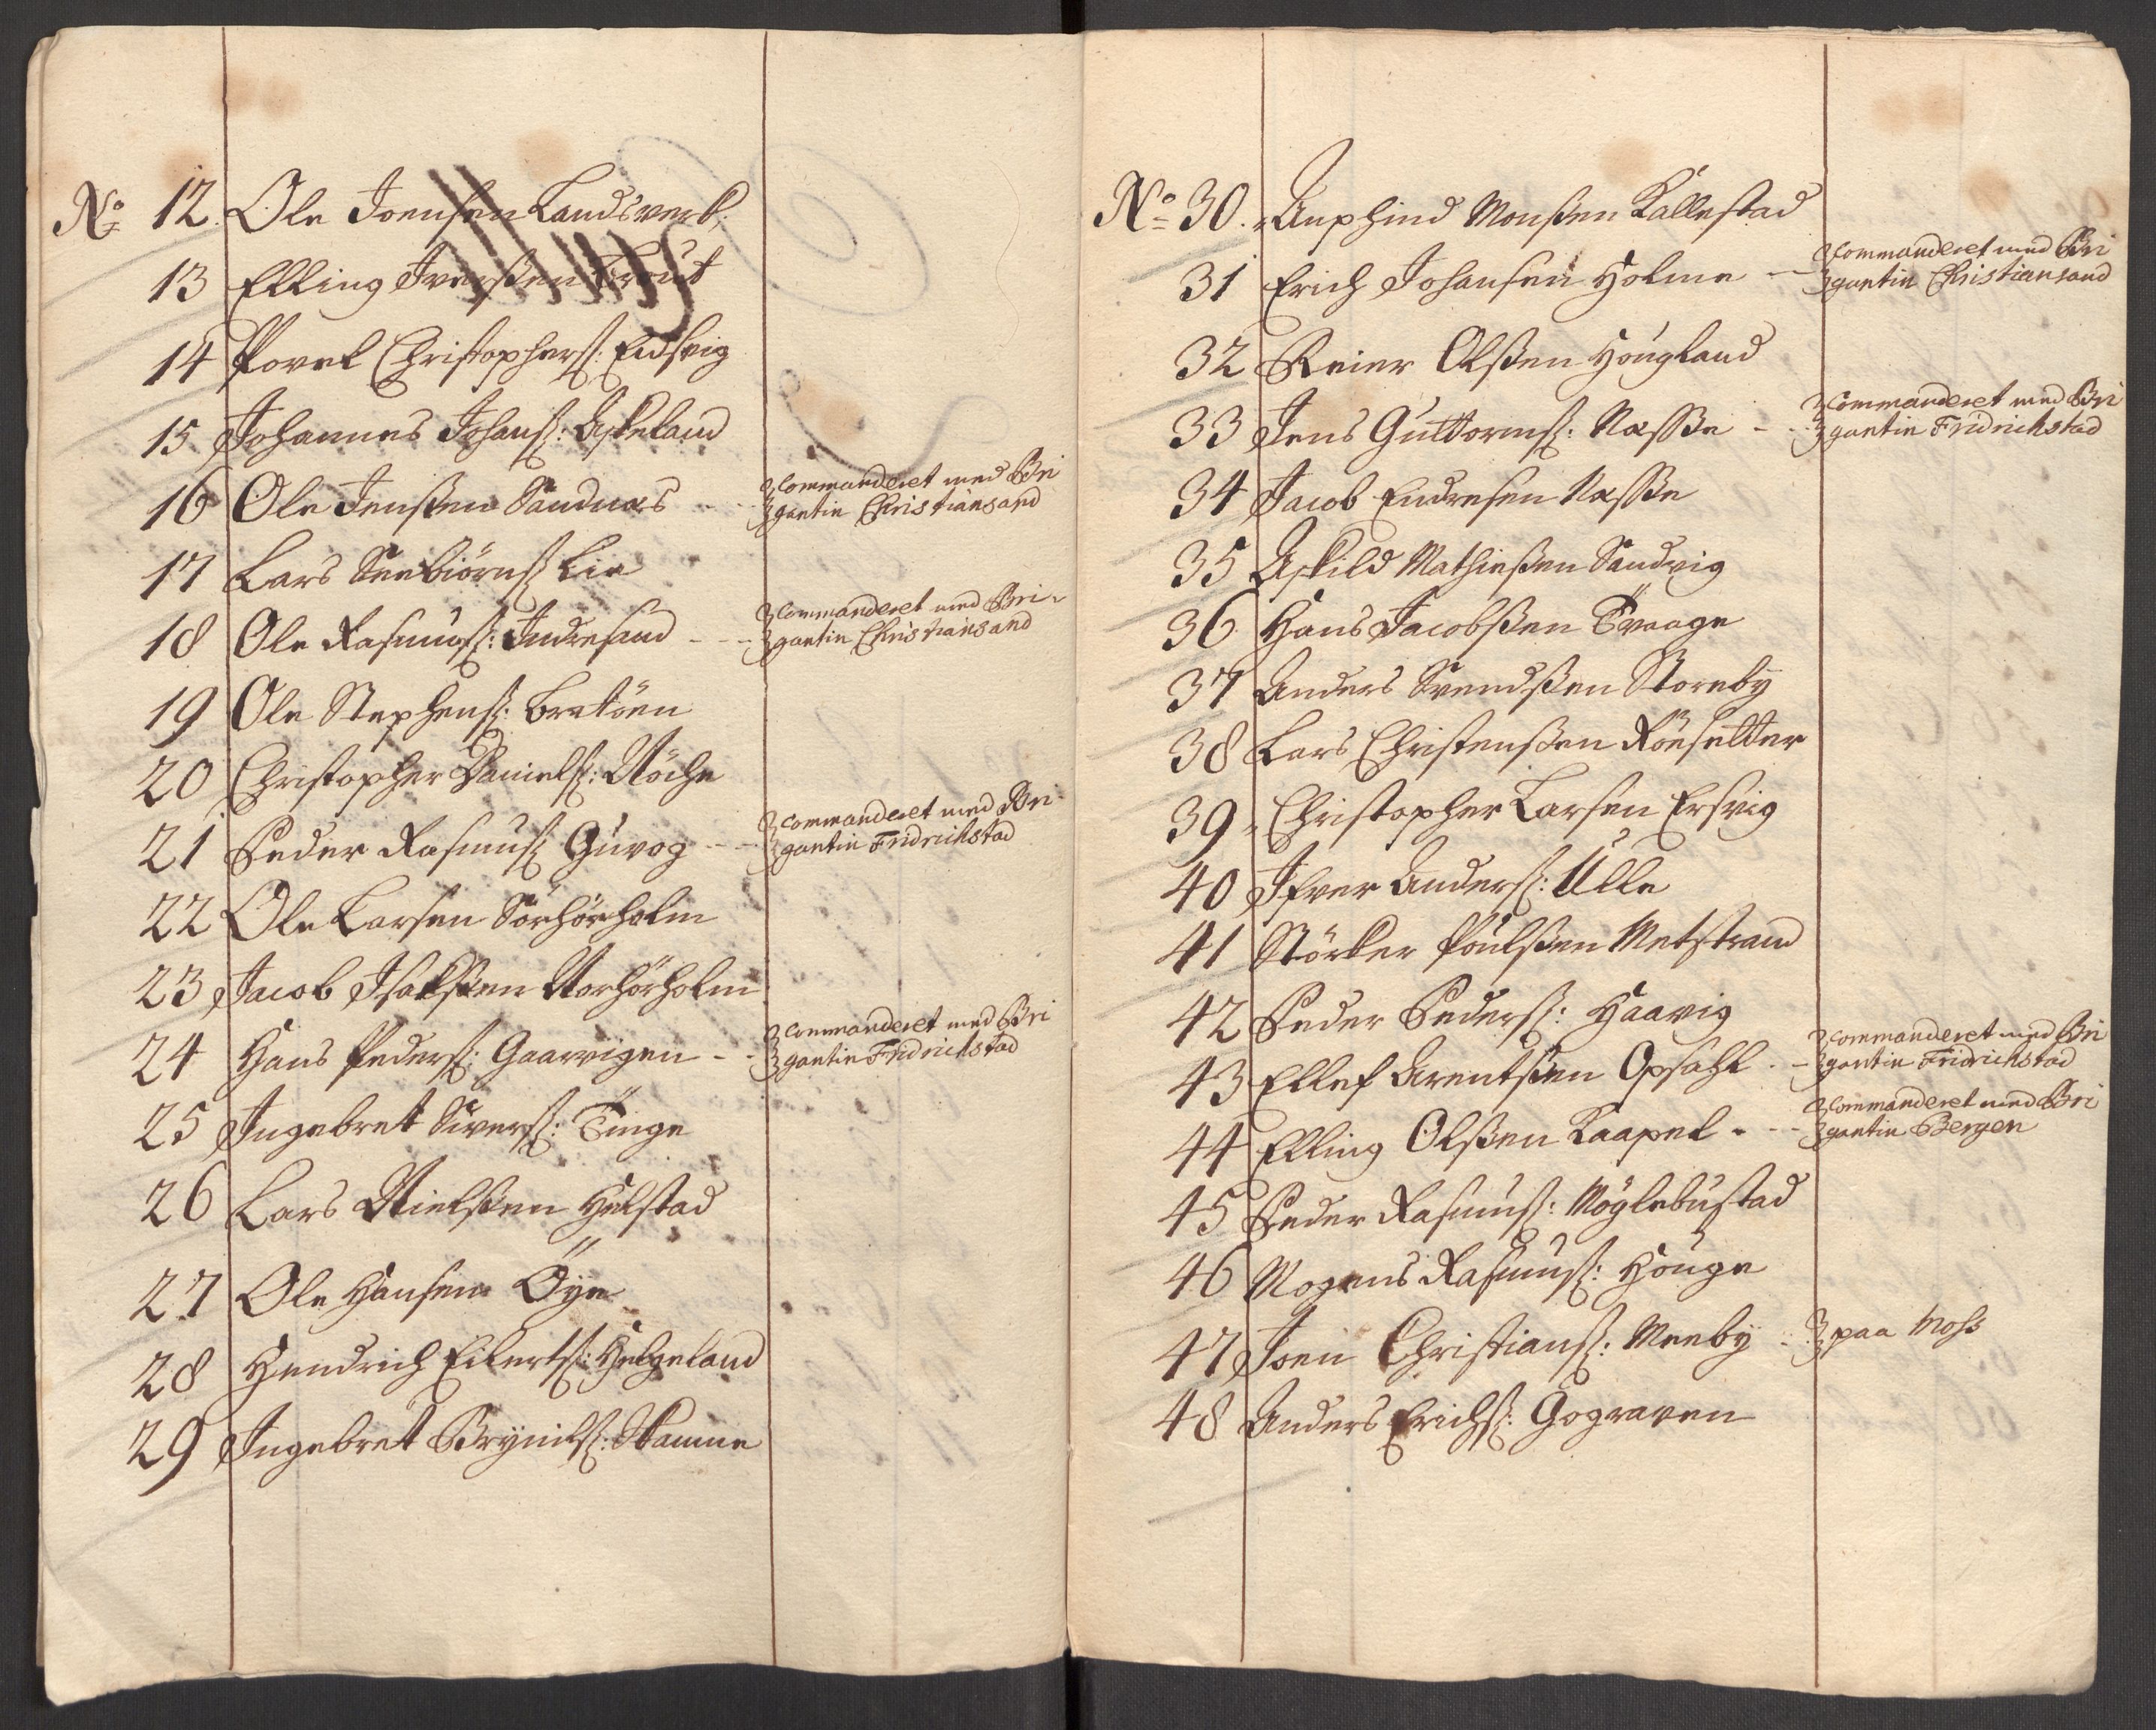 No 12. Ole Joensen Landsverk:
13 Elling Iversen Traut
14 Povel Christophers: Eidsvig
15 Johannes Johans: Askeland
16 Ole Jenssen Sandnæs - - commanderet med Bri
gantin Christiansand
17 Lars Seebiørns Lie
18 Ole Rasmus: Indresand - - - Commanderet med Bri-
gantin Christiansand
19 Ole Stephens: Bratöen
20 Christopher Daniels: Nöche
21 Peder Rasmus Guvog - - commanderet med Bri
gantin Fridrichstad
22 Ole Larsen Sörhörholm
23 Jacob Isakssen Norhörholm
24 Hans Peders: Gaarvigen - - commanderet med Bri
gantin Fridrichstad
25 Ingebret Sivers: Tinge
26 Lars Nielssen Helstad
27 Ole Hansen Öye
28 Hendrich Eilerts: Helgeland
29 Ingebret Brynils: Stamne
No 30. Anphind Monssen Kallestad
31 Erich Johansen Holme - - Commanderet med Bri
gantin Christiansand
32 Reier Olssen Hougland
33 Jens Guttorms: Næsse - - Commanderet med Bri
gantin Fridrichstad
34 Jacob Endresen Næsse
35 Askild Mathiessen Sandvig
36 Hans Jacobssen Tvaage
37 Anders Svendssen Storeby
38 Lars Christenssen Röesetter
39 Christopher Larsen Ersvig
40 Ifver Anders: Ulle
41 Störker Poulssen Metstrand
42 Peder Peders: Haavig
43 Ellef Arentssen Opsahl - - commanderet med Bri
gantin Fridrichstad
44 Elling Olssen Kaapel - - - Commanderet med Bri
gantin Bergen
45 Peder Rasmus: Möglebustad
46 Mogens Rasmus: Houge
47 Joen Christians: Meeby - paa Moss
48 Anders Erichs: Gograven